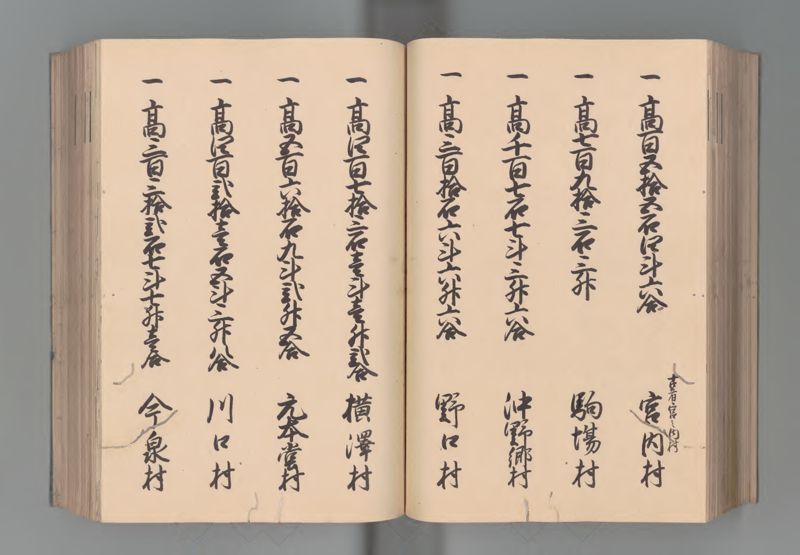 一 髙百五拾五石四斗六合 古者宮之内村 宮内村
一 髙七百九拾三石三升 駒場村
一 髙千百七石七斗三升六合 沖野郷村
一 髙三百拾石六斗六升六合 野口村
一 髙四百七拾三石壱斗壱升弐合 横澤村
一 髙五百六拾石九斗弐升五合 元本堂村
一 髙四百弐拾壱石五斗三升八合 川口村
一 髙三百三拾弐石七斗七升壱合 今泉村